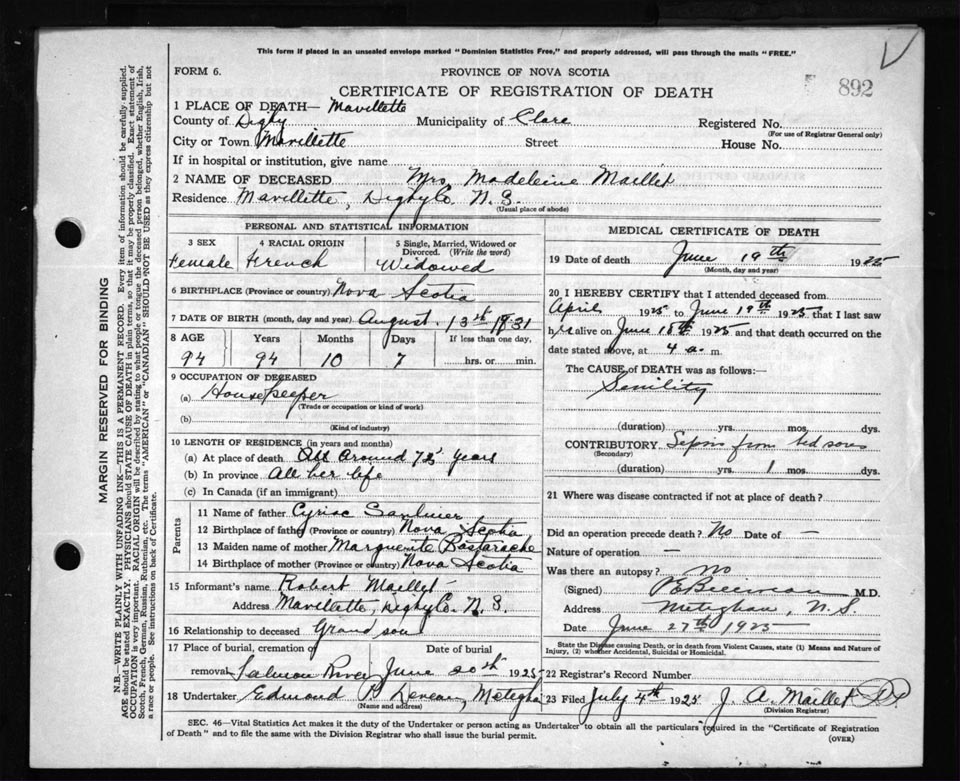 This form if placed in an unsealed envelope marked "Dominion Statistics Free," and properly addressed, will pass through the mails "FREE."
FORM 6.
PROVINCE OF NOVA SCOTIA
892
CERTIFICATE OF REGISTRATION OF DEATH
1 PLACE OF DEATH— Mavillette
County of Digby Municipality of Clare Registered No.
(For use of Registrar General only)
City or Town Mavillette Street House No.
If in hospital or institution, give name
2 NAME OF DECEASED Mrs Madeleine Maillet
Residence Mavillette, Digby Co. N. S.
(Usual place of abode)
PERSONAL AND STATISTICAL INFORMATION
3 SEX 4 RACIAL ORIGIN 5 Single, Married, Widowed or Divorced. (Write the word)
Female French Widowed
6 BIRTHPLACE (Province or country) Nova Scotia
7 DATE OF BIRTH (month, day and year) August 13th 1831
8 AGE Years Months Days If less than one day,
94 94 10 7 hrs. or min.
9 OCCUPATION OF DECEASED
(a) Housekeeper
(Trade or occupation or kind of work)
(b)
(Kind of industry)
10 LENGTH OF RESIDENCE (in years and months)
(a) At place of death All around 72 years
(b) In province All her life
(c) In Canada (if an immigrant)
Parents
11 Name of father Cyriac Saulnier
12 Birthplace of father (Province or country) Nova Scotia
13 Maiden name of mother Marguerite Bastarache
14 Birthplace of mother (Province or country) Nova Scotia
15 Informant's name Robert Maillet
Address Mavillette, Digby Co. N. S.
16 Relationship to deceased Grand son
17 Place of burial, cremation or removal Date of burial
Salmon River June 20th 1925
18 Undertaker Edmond P Deveau, Metegha
(Name and address)
MEDICAL CERTIFICATE OF DEATH
19 Date of death June 19th 1925
(Month, day and year)
20 I HEREBY CERTIFY that I attended deceased from
April 1925 to June 19th 1925, that I last saw
her alive on June 18th 1925 and that death occurred on the
date stated above, at 4 a. m.
The CAUSE OF DEATH was as follows:—
Senility
(duration) yrs. mos. dys.
CONTRIBUTORY Sepsis from bed sores
(Secondary)
(duration) yrs. 1 mos. dys.
21 Where was disease contracted if not at place of death?
Did an operation precede death? No Date of —
Nature of operation —
Was there an autopsy? no
(Signed) M.D.
Address Meteghan, N.S.
Date June 27th 1925
State the Disease causing Death, or in death from Violent Causes, state (1) Means and Nature of Injury, (2) whether Accidental, Suicidal or Homicidal.
22 Registrar's Record Number
23 Filed July 4th 1925 J. A. Maillet
(Division Registrar)
SEC. 46—Vital Statistics Act makes it the duty of the Undertaker or person acting as Undertaker to obtain all the particulars required in the "Certificate of Registration
of Death" and to file the same with the Division Registrar who shall issue the burial permit.
(OVER)
MARGIN RESERVED FOR BINDING
N.B.—WRITE PLAINLY WITH UNFADING INK—THIS IS A PERMANENT RECORD. Every item of information should be carefully supplied.
AGE should be stated EXACTLY. PHYSICIANS should STATE CAUSE OF DEATH in plain terms, so that it may be properly classified. Exact statement of
OCCUPATION is very important. RACIAL ORIGIN will be described by stating to what people or tongue the deceased person belonged, whether English, Irish,
Scotch, French, German, Russian, Ruthenian, etc. The terms "AMERICAN" or "CANADIAN" SHOULD NOT BE USED as they express citizenship but not
a race or people. See instructions on back of Certificate.